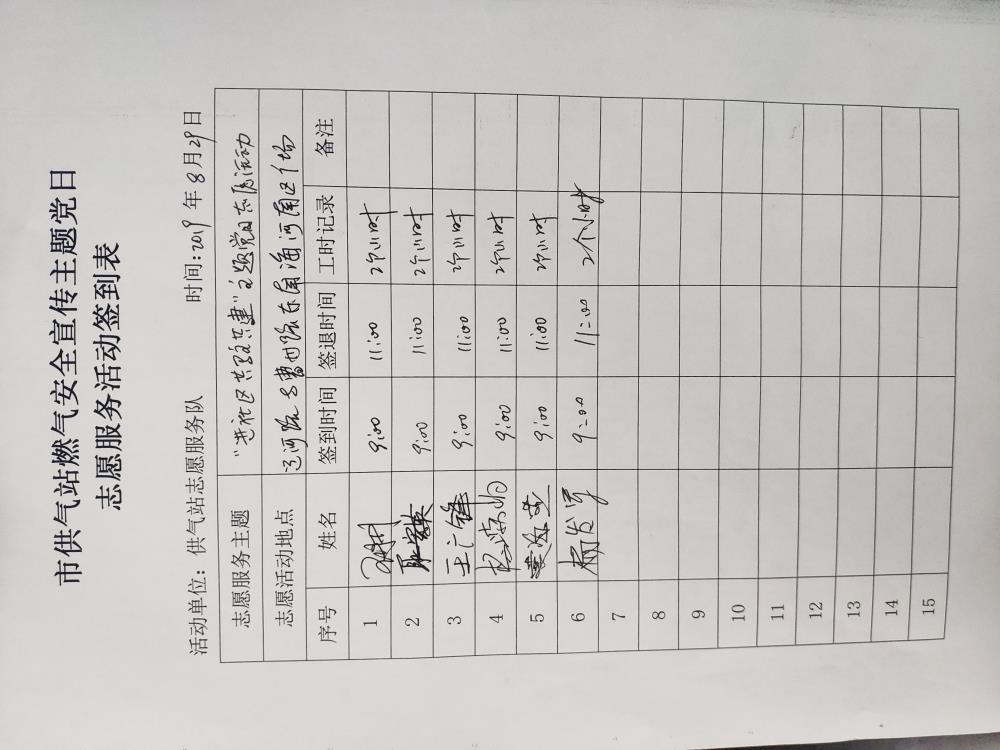 市供气站燃气安全宣传主题党日
志愿服务活动签到表
活动单位：供气站志愿服务队 时间：2019年8月29日
志愿服务主题 "进社区 共驻共建"主题党日志愿活动
志愿活动地点 辽河路与曹州路东南海河南区广场
序号 姓名 签到时间 签退时间 工时记录 备注
1 9:00 11:00 2个小时
2 9:00 11:00 2个小时
3 王广锋 9:00 11:00 2个小时
4 9:00 11:00 2个小时
5 9:00 11:00 2个小时
6 9:00 11:00 2个小时
7
8
9
10
11
12
13
14
15